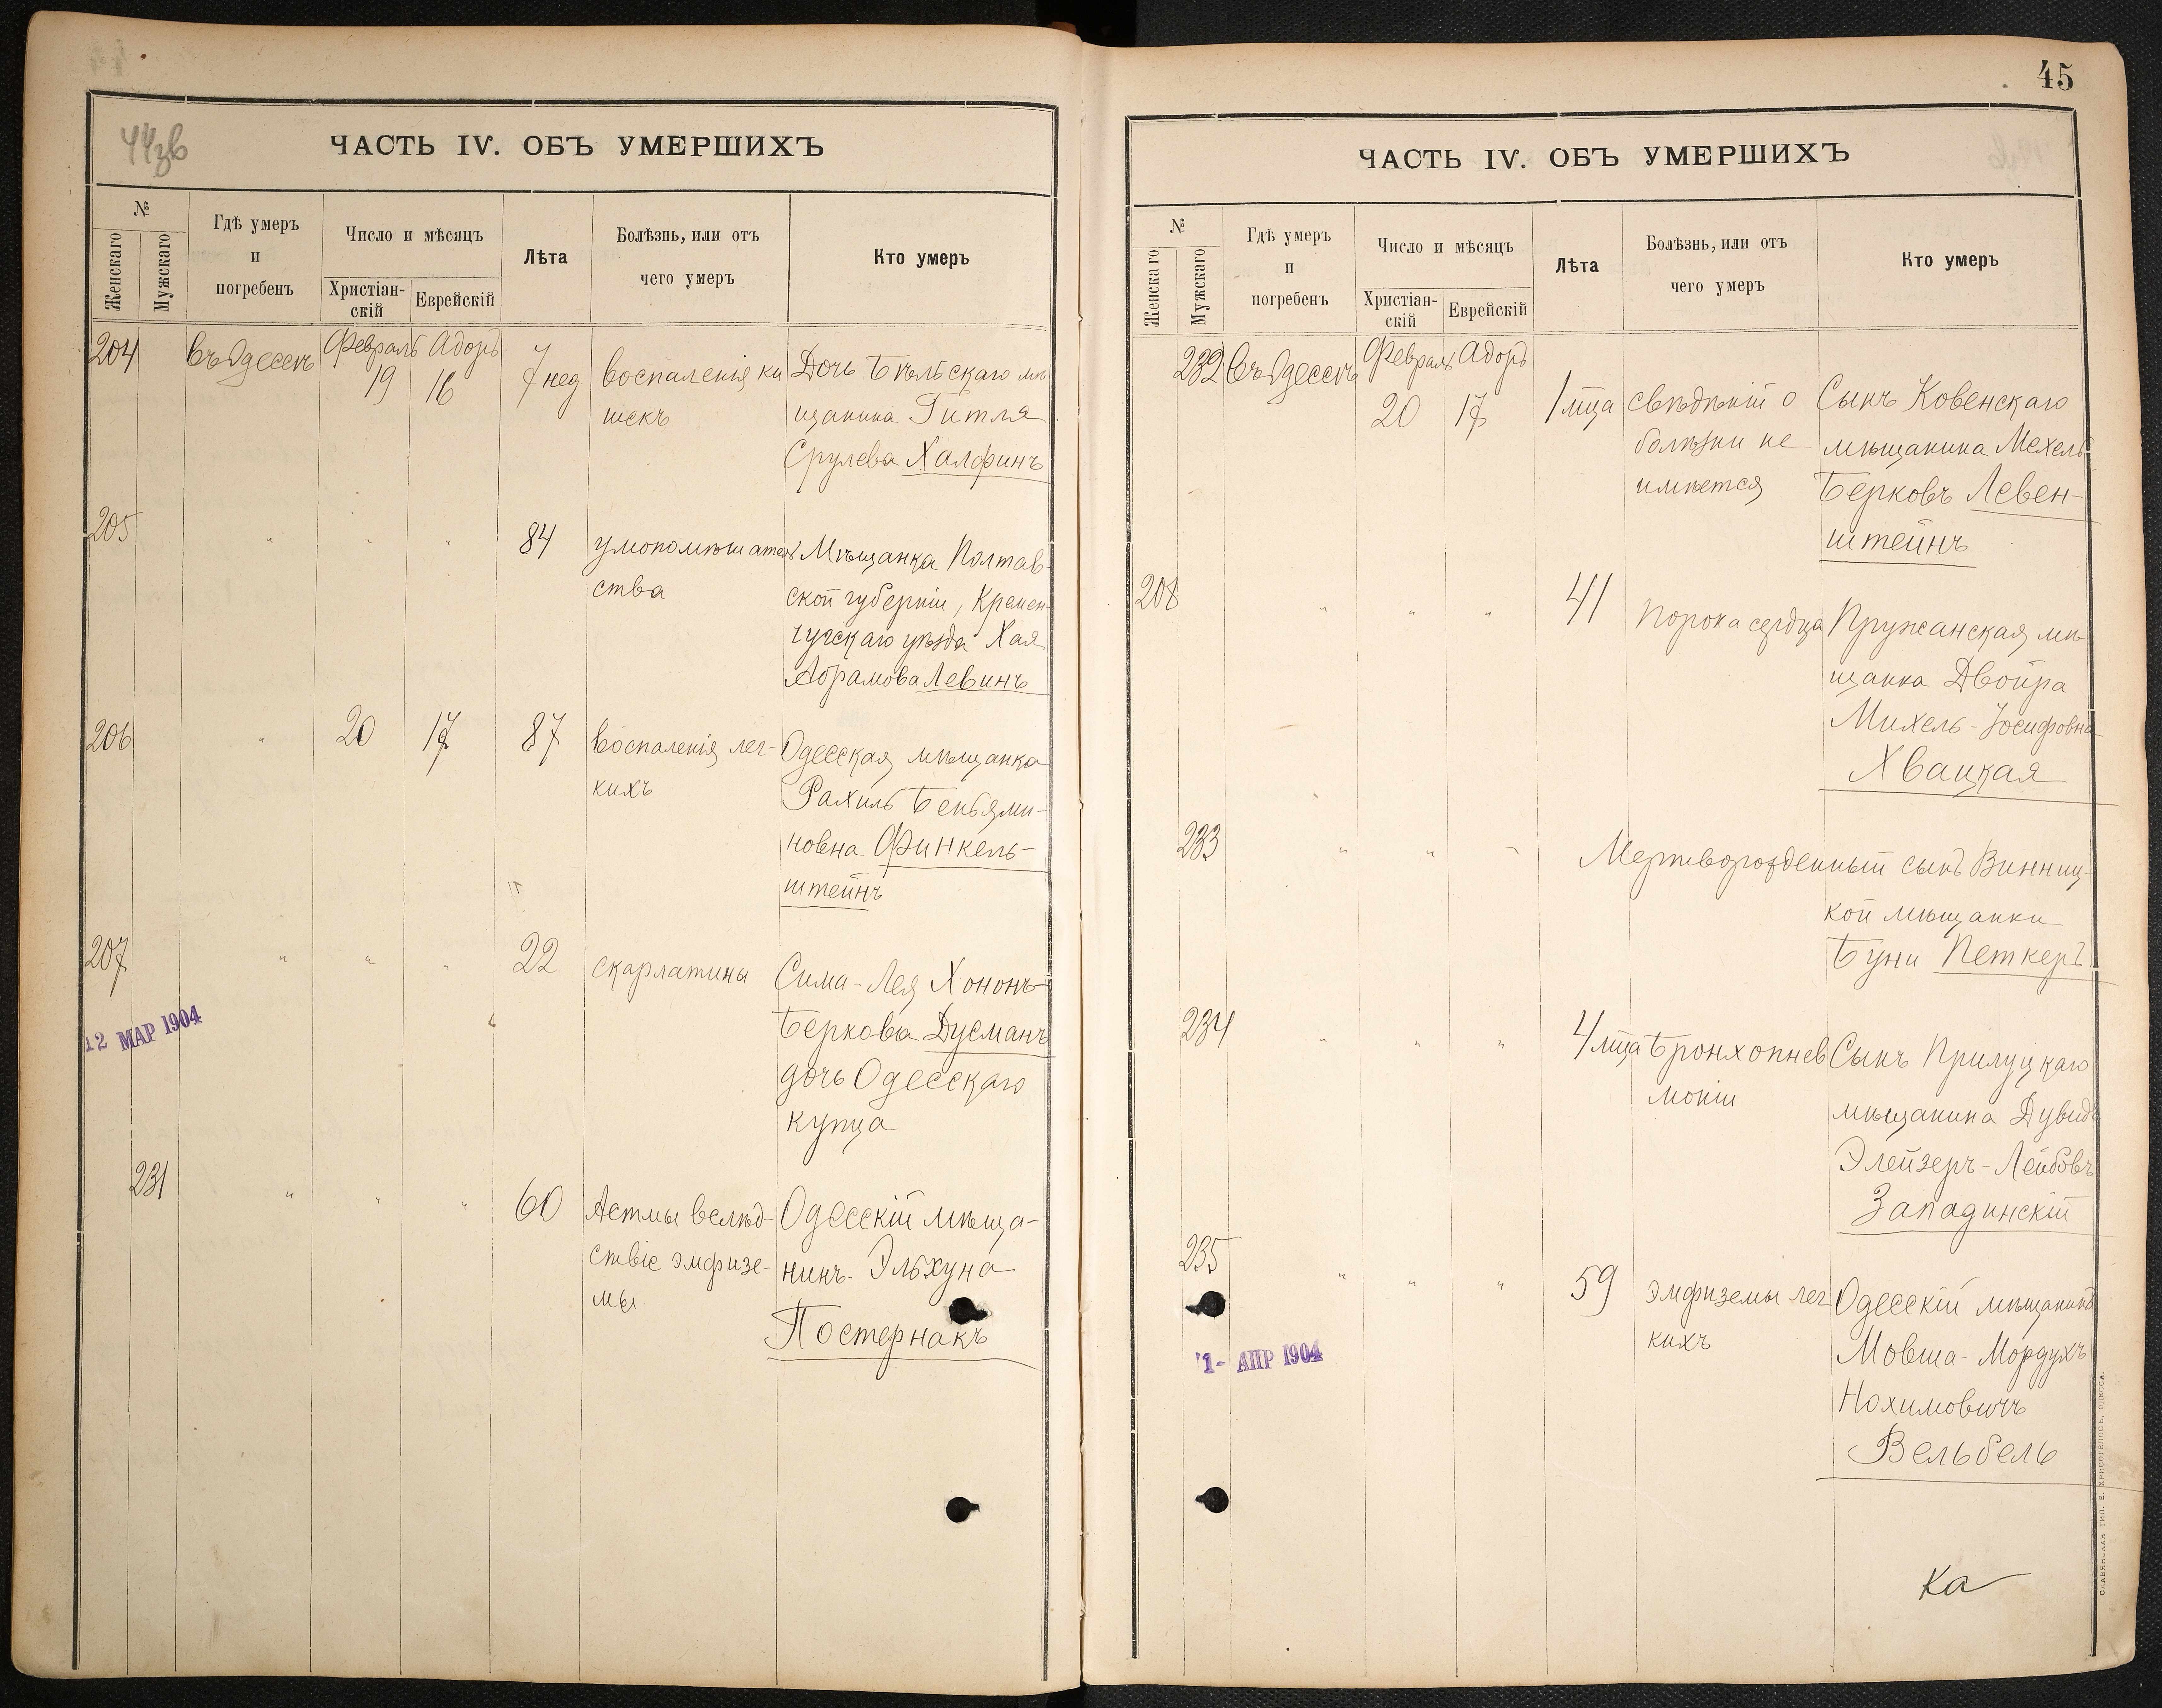 44зв
ЧАСТЬ IV. ОБЪ УМЕРШИХЪ
№
Женскаго
Мужскаго
Гдѣ умеръ
и
погребенъ
Число и мѣсяцъ
Христіан-
скій
Еврейскій
Лѣта
Болѣзнь, или отъ
чего умеръ
Кто умеръ
204 Въ Одессѣ Февраль Адоръ
19 16 7 нед. воспаленія ки
шекъ
Дочь Бѣльскаго мѣ
щанина Гитля
Срулева Халфинъ
205 " " " 84 умопомѣшатель
ства
Мѣщанка Полтав-
ской губерніи, Кремен-
чугскаго уѣзда Хая
Абрамова Левинъ
206 " 20 17 87 воспаленія лег-
кихъ
Одесская мѣщанка
Рахиль Беньями-
новна Финкель-
штейнъ
207 " " " 22 скарлатины
Сима-Лея Хононъ-
Беркова Дусманъ
дочь Одесскаго
купца
12 МАР 1904
231 " " " 60 Астмы вслѣд-
ствіе эмфизе-
мы
Одесскій мѣща-
нинъ Эльхуна
Постернакъ
45
ЧАСТЬ IV. ОБЪ УМЕРШИХЪ
№
Женскаго
Мужскаго
Гдѣ умеръ
и
погребенъ
Число и мѣсяцъ
Христіан-
скій
Еврейскій
Лѣта
Болѣзнь, или отъ
чего умеръ
Кто умеръ
232 Въ Одессѣ Февраль Адоръ
20 17 1 мца свѣдѣній о
болѣзни не
имѣется
Сынъ Ковенскаго
мѣщанина Мехель
Берковъ Левен-
штейнъ
208 " " " 41 порока сердца
Пружанская мѣ-
щанка Двойра
Михель-Іосифовна
Хвацкая
233 " " " Мертворожденный сынъ Винниц-
кой мѣщанки
Буни Петкеръ
234 " " " 4 мца Бронхопнев
моніи
Сынъ Прилуцкаго
мѣщанина Дувидъ
Элейзеръ-Лейбовъ
Западинскій
235 " " " 59 эмфиземы лег
кихъ
Одесскій мѣщанинъ
Мовша-Мордухъ
Нохимовичъ
Вельбель
1- АПР 1904
Ка
СЛАВЯНСКАЯ ТИП. Е. ХРИСОГЕЛОСЪ, ОДЕССА.